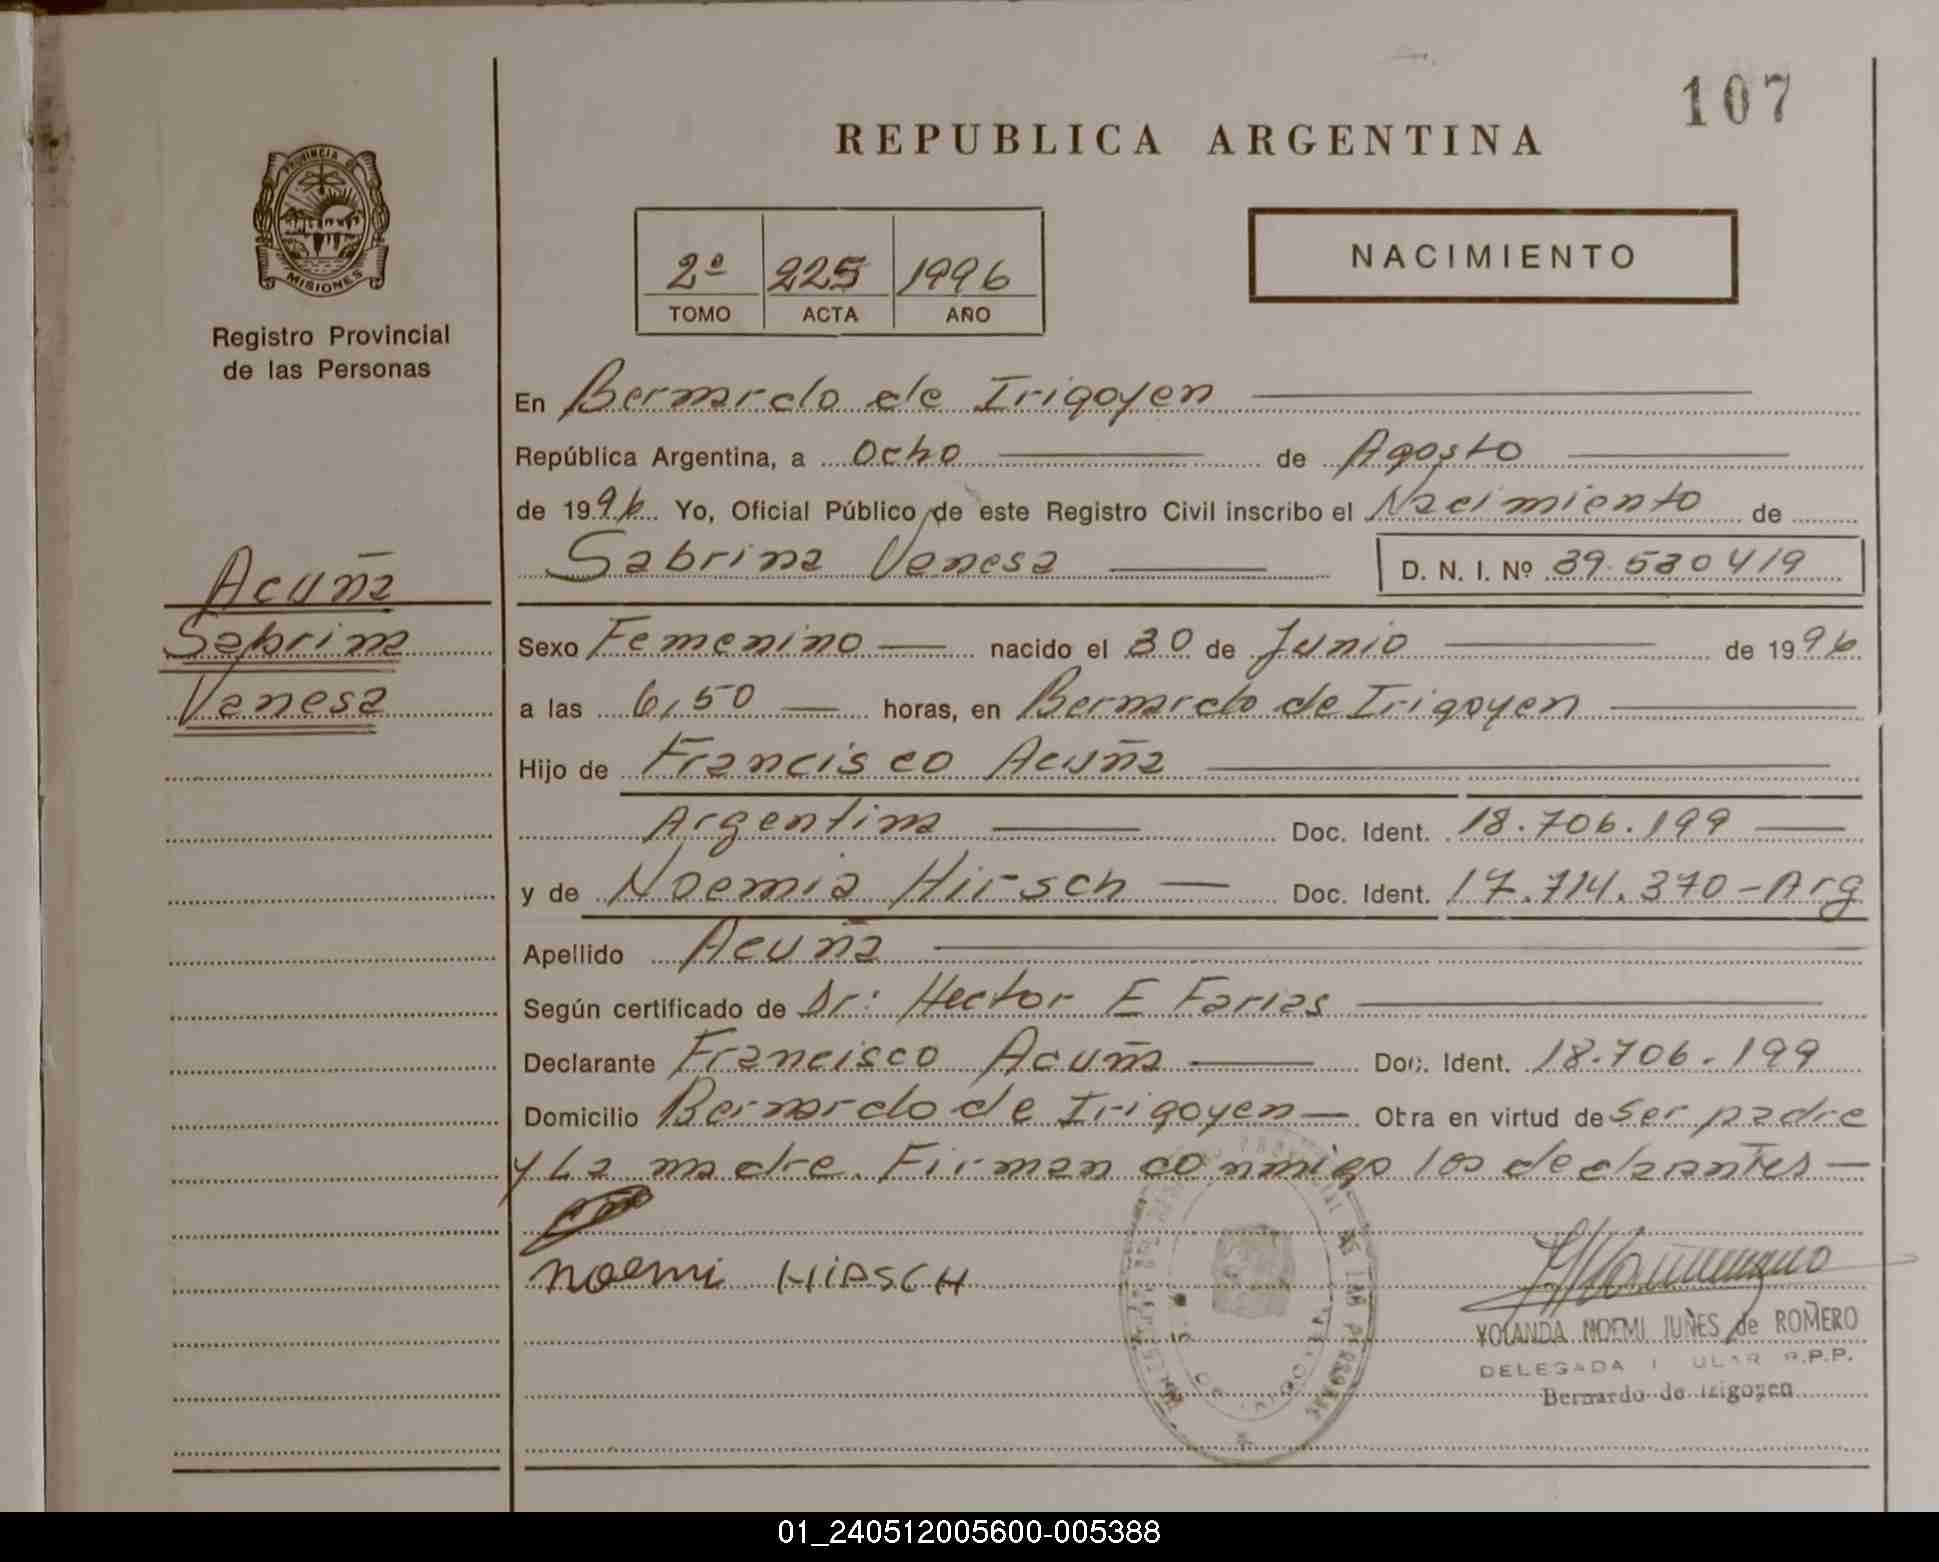 107
REPUBLICA ARGENTINA
PROVINCIA DE
MISIONES
Registro Provincial
de las Personas
2º 225 1996
TOMO ACTA AÑO
NACIMIENTO
En Bernardo de Irigoyen
República Argentina, a Ocho de Agosto
de 1996 Yo, Oficial Público de este Registro Civil inscribo el Nacimiento de
Sabrina Vanesa D. N. I. Nº 39.530419
Acuña
Sabrina
Vanesa
Sexo Femenino nacido el 30 de Junio de 1996
a las 6,50 horas, en Bernardo de Irigoyen
Hijo de Francisco Acuña
Argentina Doc. Ident. 18.706.199
y de Noemia Hirsch Doc. Ident. 17.714.370-Arg
Apellido Acuña
Según certificado de Dr: Hector E Farias
Declarante Francisco Acuña Doc. Ident. 18.706.199
Domicilio Bernardo de Irigoyen Obra en virtud de ser padre
y La madre. Firman conmigo los declarantes
noemi HIRSCH
YOLANDA NOEMI JUÑES de ROMERO
DELEGADA R.P.P.
Bernardo de Irigoyen
01_240512005600-005388